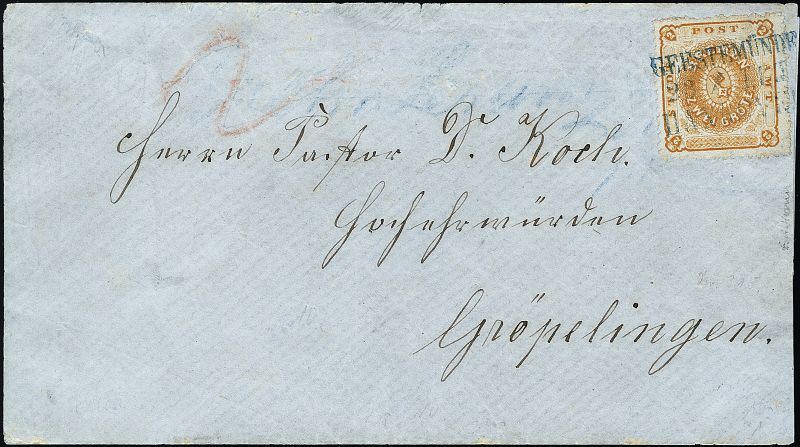 POST
GEESTEMÜNDE
ZWEI GROTE
2
Herrn Pastor D. Koch.
Hochehrwürden
Gröpelingen.